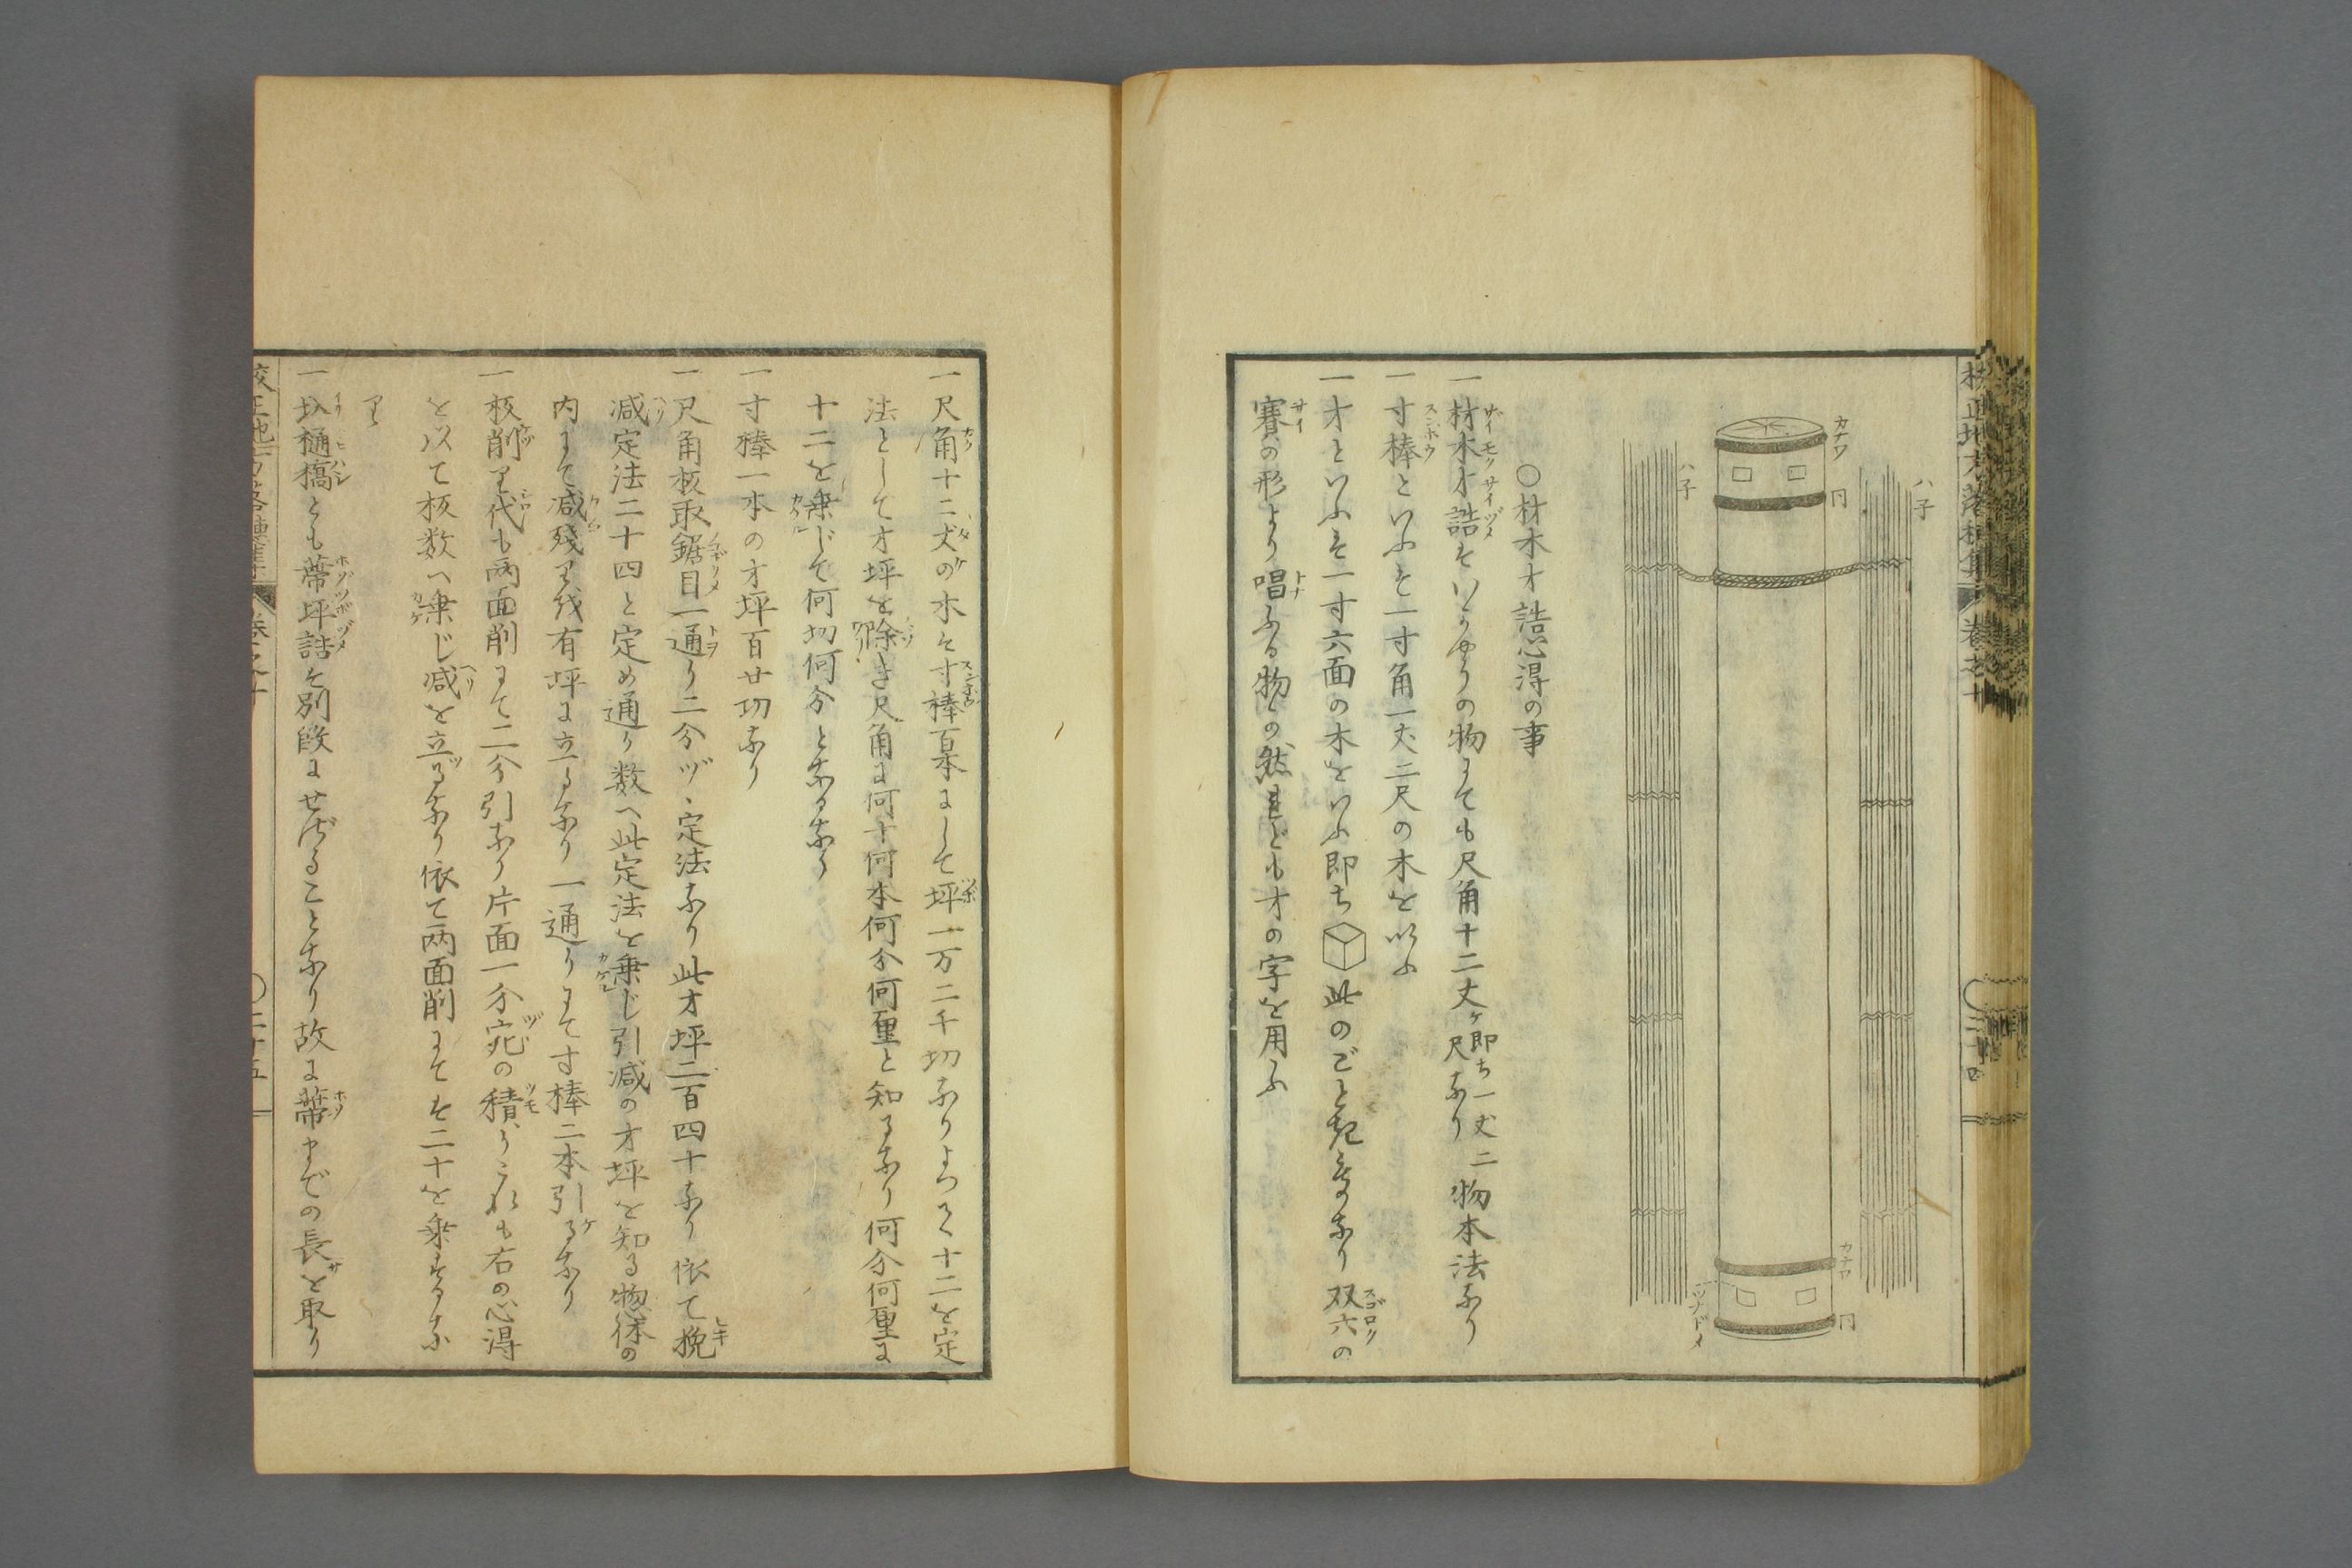 カナワ
同
ハ子
ハ子
カナワ
同
ツナドメ
○材木才詰心得の事
一材木才詰はいかやうの物にても尺角十二丈ケ即ち一丈二尺なり物本法なり
一寸棒といふは一寸角一丈二尺の木を以ふ
一才といふは一寸六面の木をいふ即ち此のごとき
なり双六の
賽の形より唱ふる物の然れども才の字を用ふ
一尺角十二丈の木は寸棒百本にして坪一万二千切なりよつて十二を定
法として才坪を除き尺角に何十何本何分何厘と知るなり何分何厘に
十二を乗じて何切何分となるなり
一寸棒一本の才坪百廿切なり
一尺角板取鋸目一通り二分ヅヽ定法なり此才坪二百四十なり依て挽
減定法二十四と定め通り数へ此定法を乗じ引減の才坪を知る惣体の
内にて減残りを有坪に立るなり一通りにて寸棒二本引るなり
一板削り代も両面削にて二分引なり片面一分宛の積りこれも右の心得
を以て板数へ乗じ減を立るなり依て両面削にては二十を乗ずるな
り
一圦樋橋とも蔕坪詰は別段にせざることなり故に蔕までの長を取り
校正地方落穂集
巻之十
○二十五